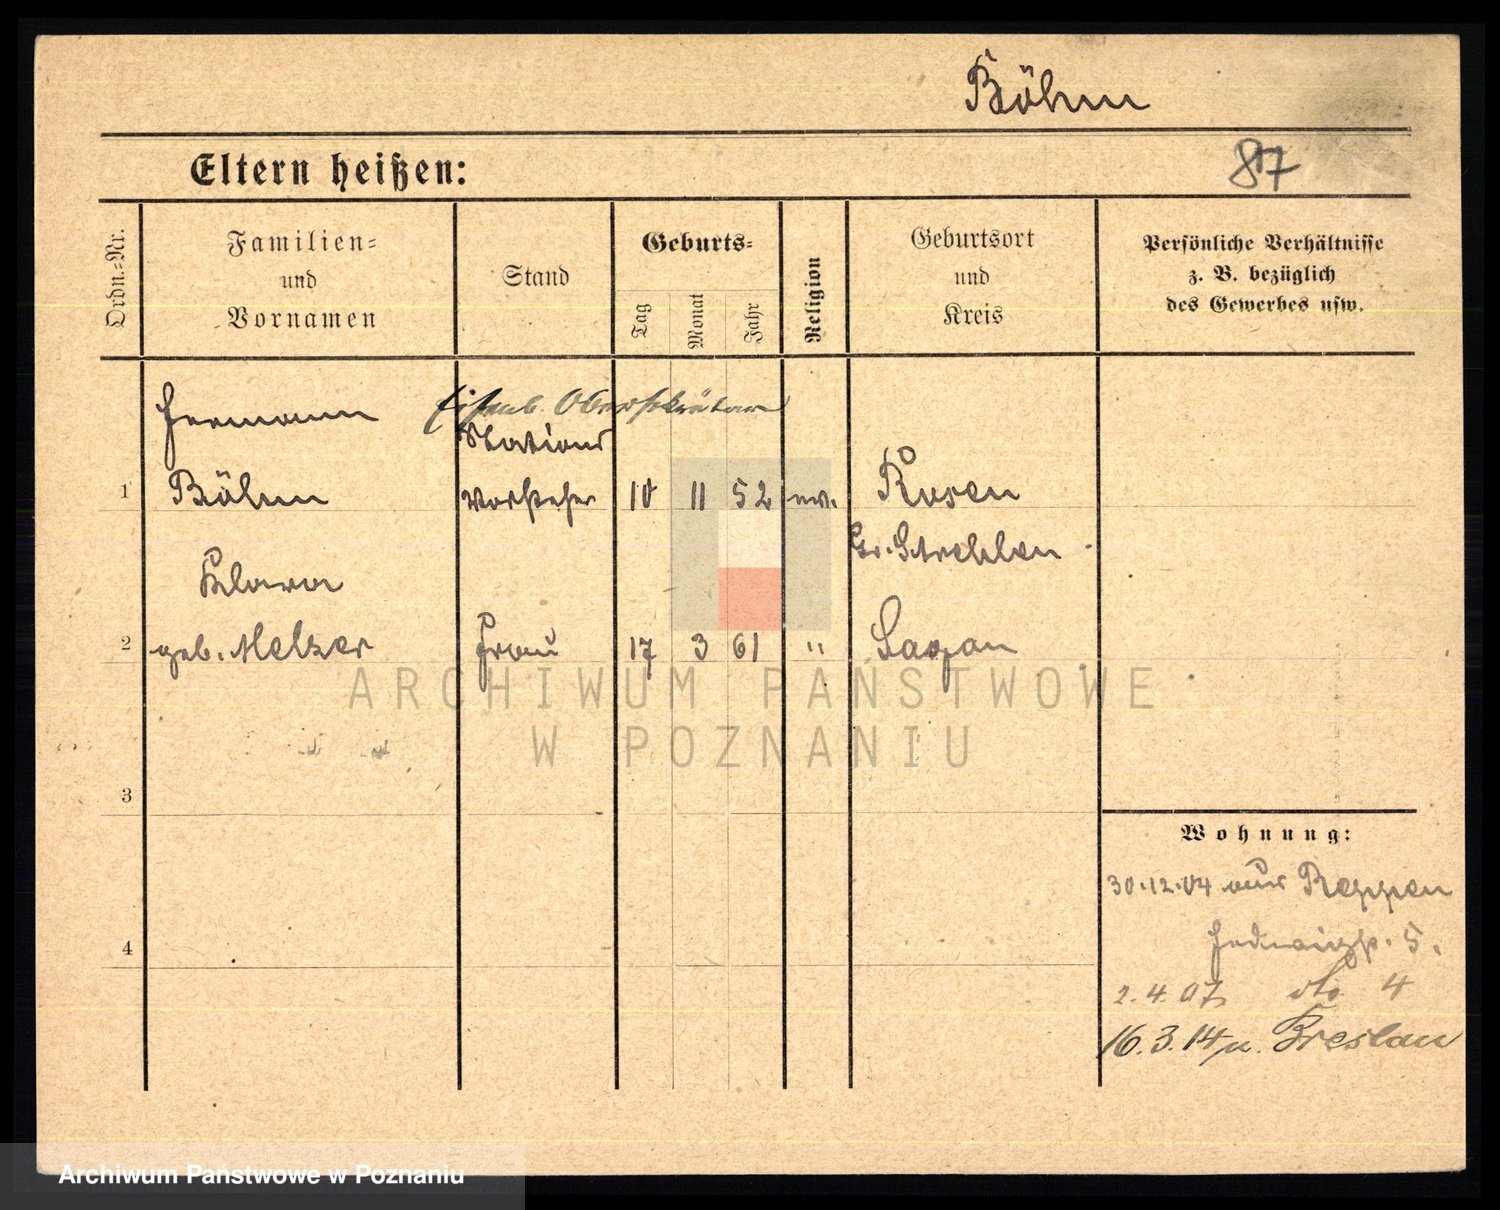 Böhm
Eltern heißen:
87
Ordn.-Nr.
Familien-
und
Vornamen
Stand
Geburts-
Tag
Monat
Jahr
Religion
Geburtsort
und
Kreis
Persönliche Verhältnisse
z. B. bezüglich
des Gewerbes usw.
Hermann
Eisenb. Obersekretär
Stations
1 Böhm vorsteher 10 11 52 ev. Rosen
Kr. Strehlen
Klara
2 geb. Melzer Frau 17 3 61 " Sagan
ARCHIWUM PAŃSTWOWE
W POZNANIU
3
Wohnung:
30.12.04 aus Reppen
4
5.
2.4.07 dto 4
16.3.14 n. Breslau
Archiwum Państwowe w Poznaniu